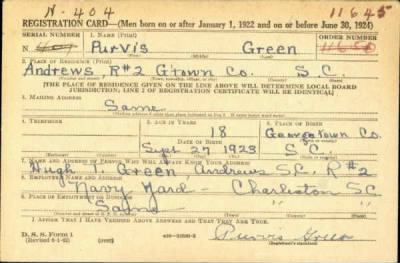 N-404 11645
REGISTRATION CARD—(Men born on or after January 1, 1922 and on or before June 30, 1924)
SERIAL NUMBER 1. NAME (Print) ORDER NUMBER
N. Purvis Green 11650
(First) (Middle) (Last)
2. PLACE OF RESIDENCE (Print)
Andrews R#2 G'town Co. S.C.
(Number and street) (Town, township, village, or city) (County) (State)
[THE PLACE OF RESIDENCE GIVEN ON THE LINE ABOVE WILL DETERMINE LOCAL BOARD
JURISDICTION; LINE 2 OF REGISTRATION CERTIFICATE WILL BE IDENTICAL]
3. MAILING ADDRESS
Same
4. TELEPHONE 5. AGE IN YEARS 6. PLACE OF BIRTH
18 Georgetown Co.
DATE OF BIRTH
Sept. 27 1923 S.C.
7. NAME AND ADDRESS OF PERSON WHO WILL ALWAYS KNOW YOUR ADDRESS
Hugh T. Green, Andrews S.C. R#2
8. EMPLOYER'S NAME AND ADDRESS
Navy Yard - Charleston S.C.
9. PLACE OF EMPLOYMENT OR BUSINESS
Same " "
I AFFIRM THAT I HAVE VERIFIED ABOVE ANSWERS AND THAT THEY ARE TRUE.
D. S. S. Form 1
Purvis Green
(Registrant's signature)